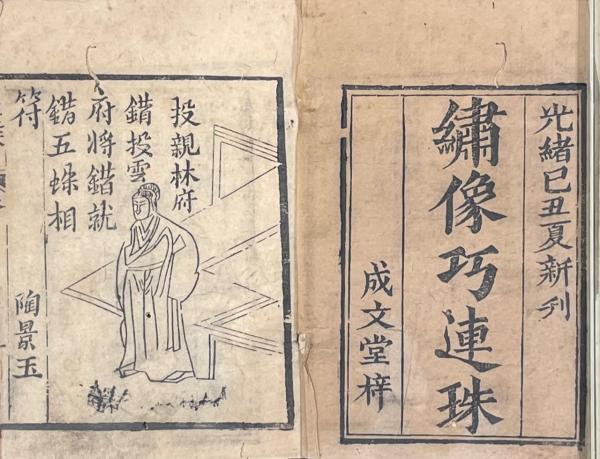 光緒己丑夏新刊
繡像巧連珠
成文堂梓
投親林府
錯投雲
府將錯就
錯五蛛相
符
陶景玉